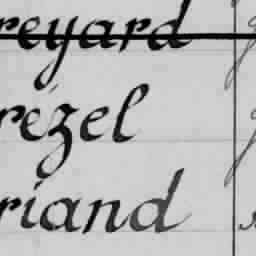 reyard
rézel
riand